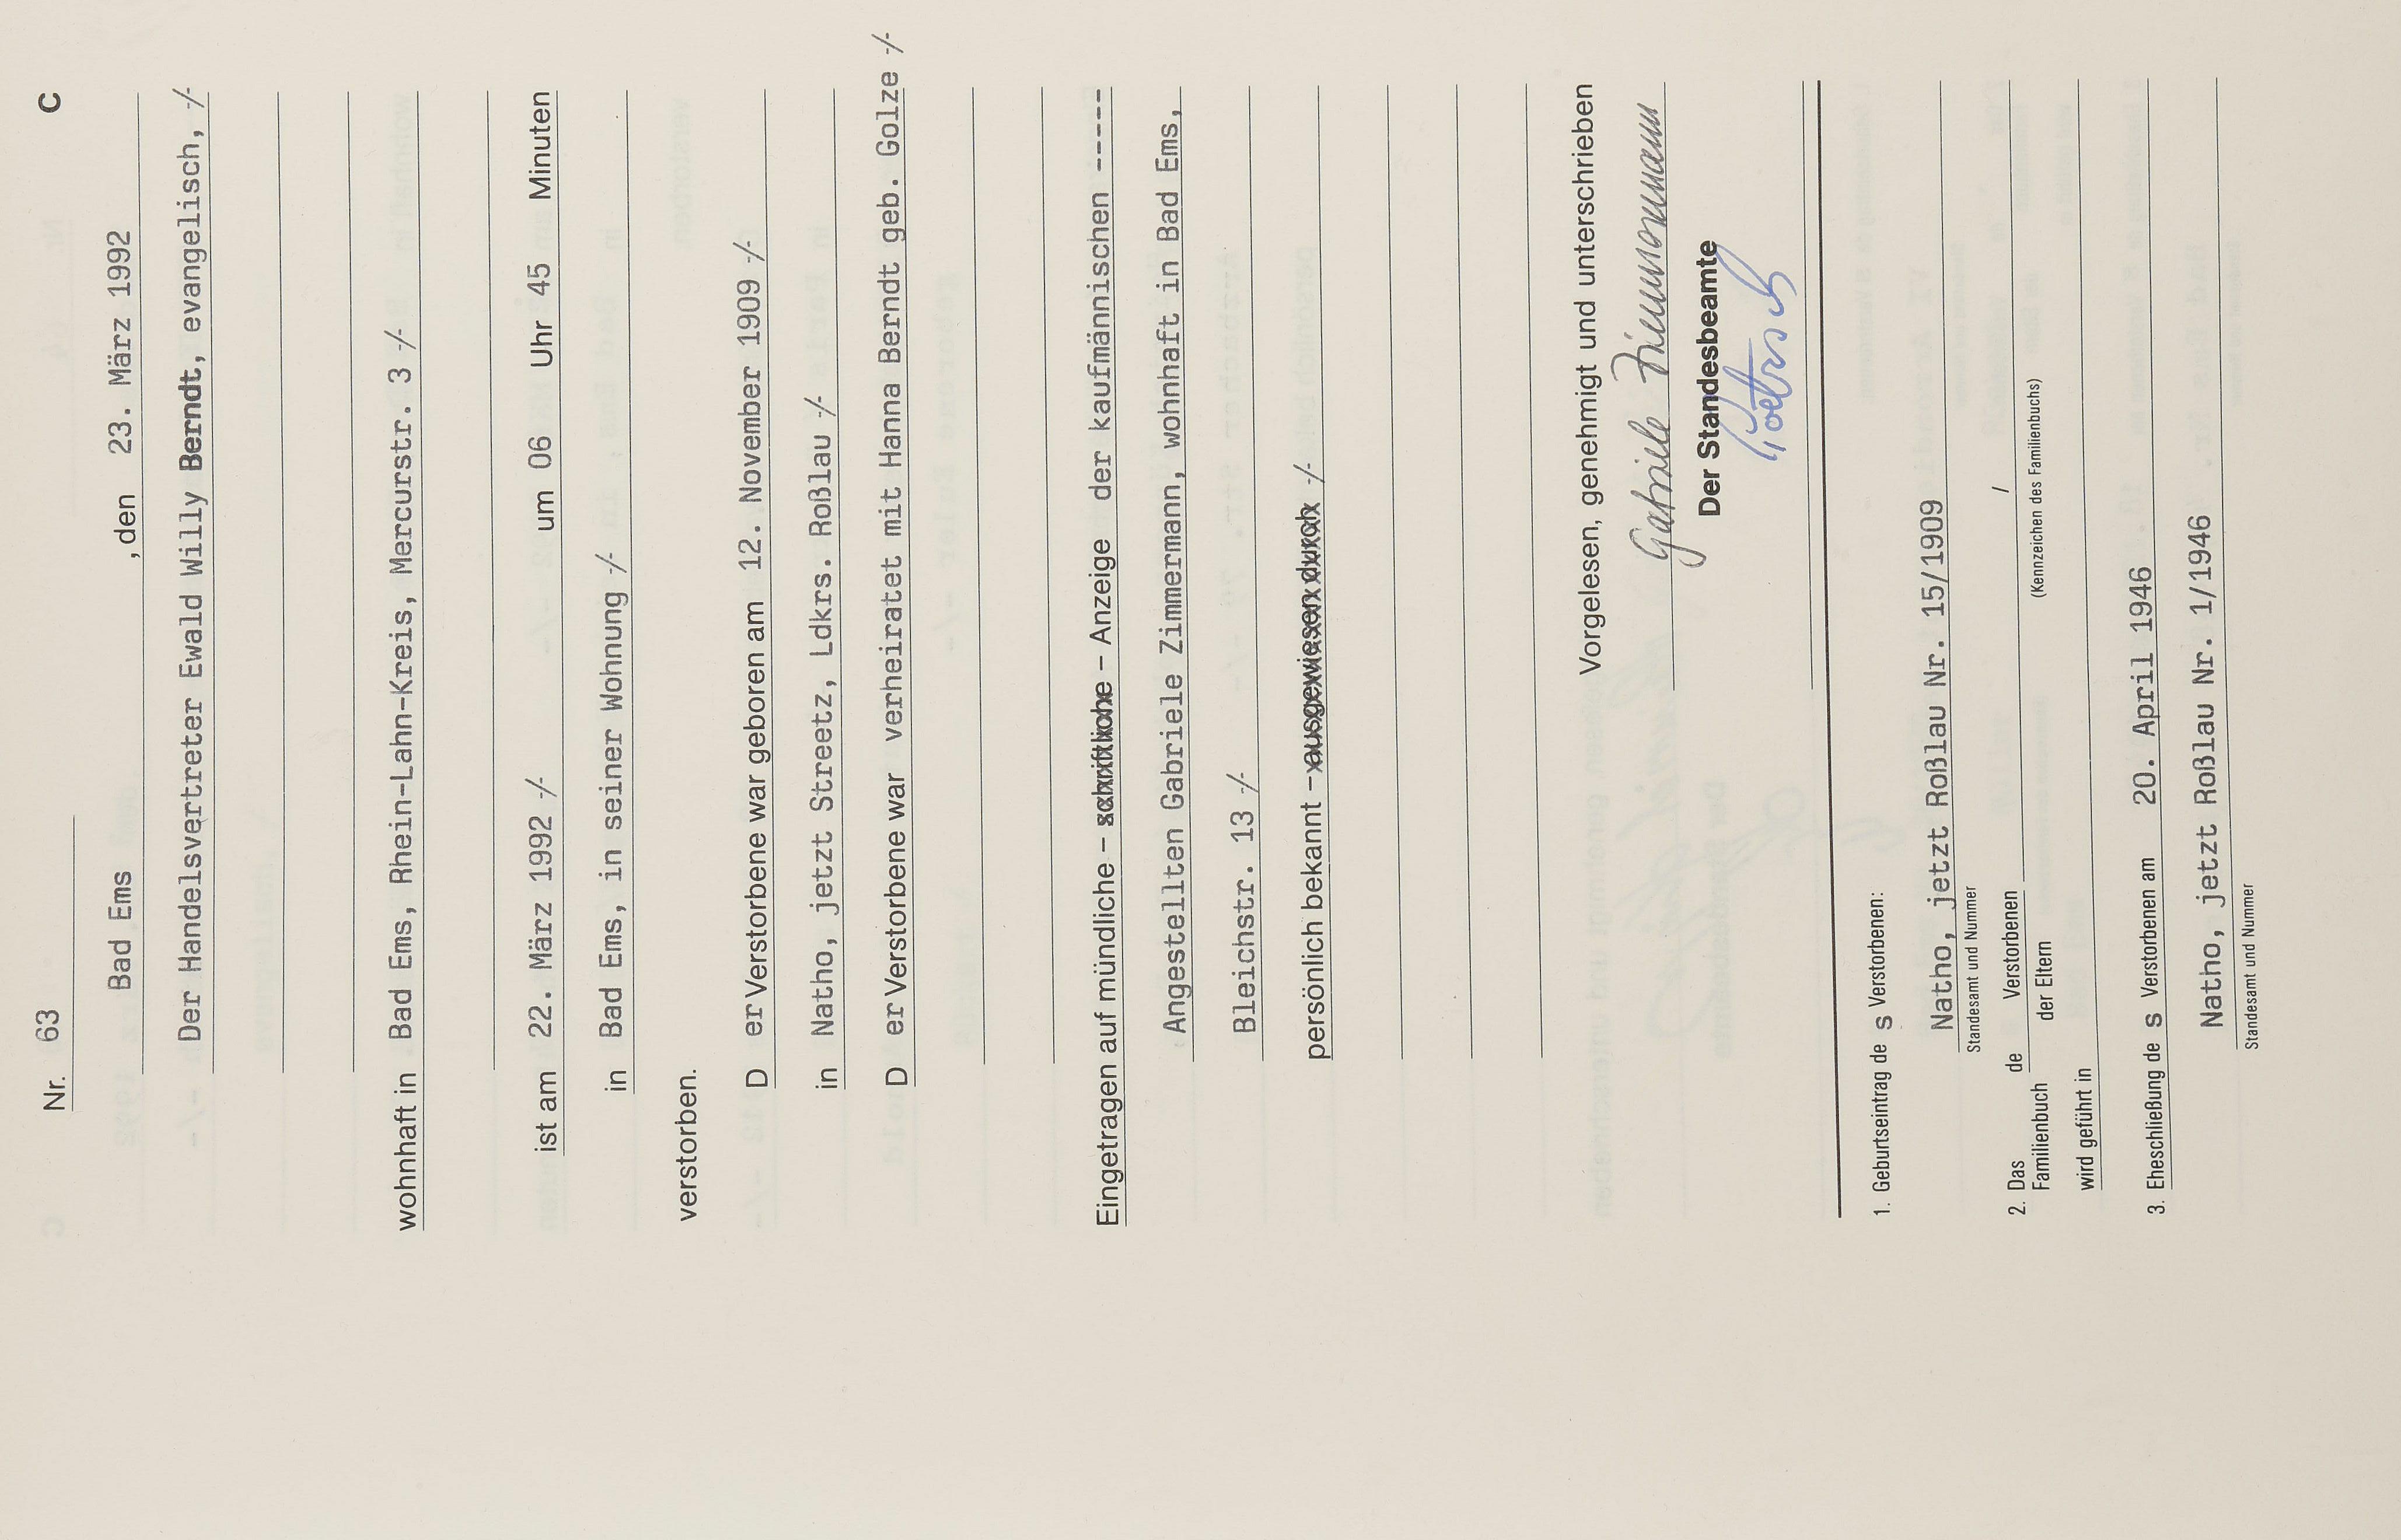 Nr. 63 C
Bad Ems , den 23. März 1992
Der Handelsvertreter Ewald Willy Berndt, evangelisch, -/-
wohnhaft in Bad Ems, Rhein-Lahn-Kreis, Mercurstr. 3 -/-
ist am 22. März 1992 -/- um 06 Uhr 45 Minuten
in Bad Ems, in seiner Wohnung -/-
verstorben.
D er Verstorbene war geboren am 12. November 1909 -/-
in Natho, jetzt Streetz, Ldkrs. Roßlau -/-
D er Verstorbene war verheiratet mit Hanna Berndt geb. Golze -/-
Eingetragen auf mündliche – schriftliche – Anzeige der kaufmännischen -----
Angestellten Gabriele Zimmermann, wohnhaft in Bad Ems,
Bleichstr. 13 -/-
persönlich bekannt – ausgewiesen durch -/-
Vorgelesen, genehmigt und unterschrieben
Gabriele Zimmermann
Der Standesbeamte
1. Geburtseintrag de s Verstorbenen:
Natho, jetzt Roßlau Nr. 15/1909
Standesamt und Nummer
2. Das Familienbuch de Verstorbenen /
der Eltern (Kennzeichen des Familienbuchs)
wird geführt in
3. Eheschließung de s Verstorbenen am 20. April 1946
Natho, jetzt Roßlau Nr. 1/1946
Standesamt und Nummer